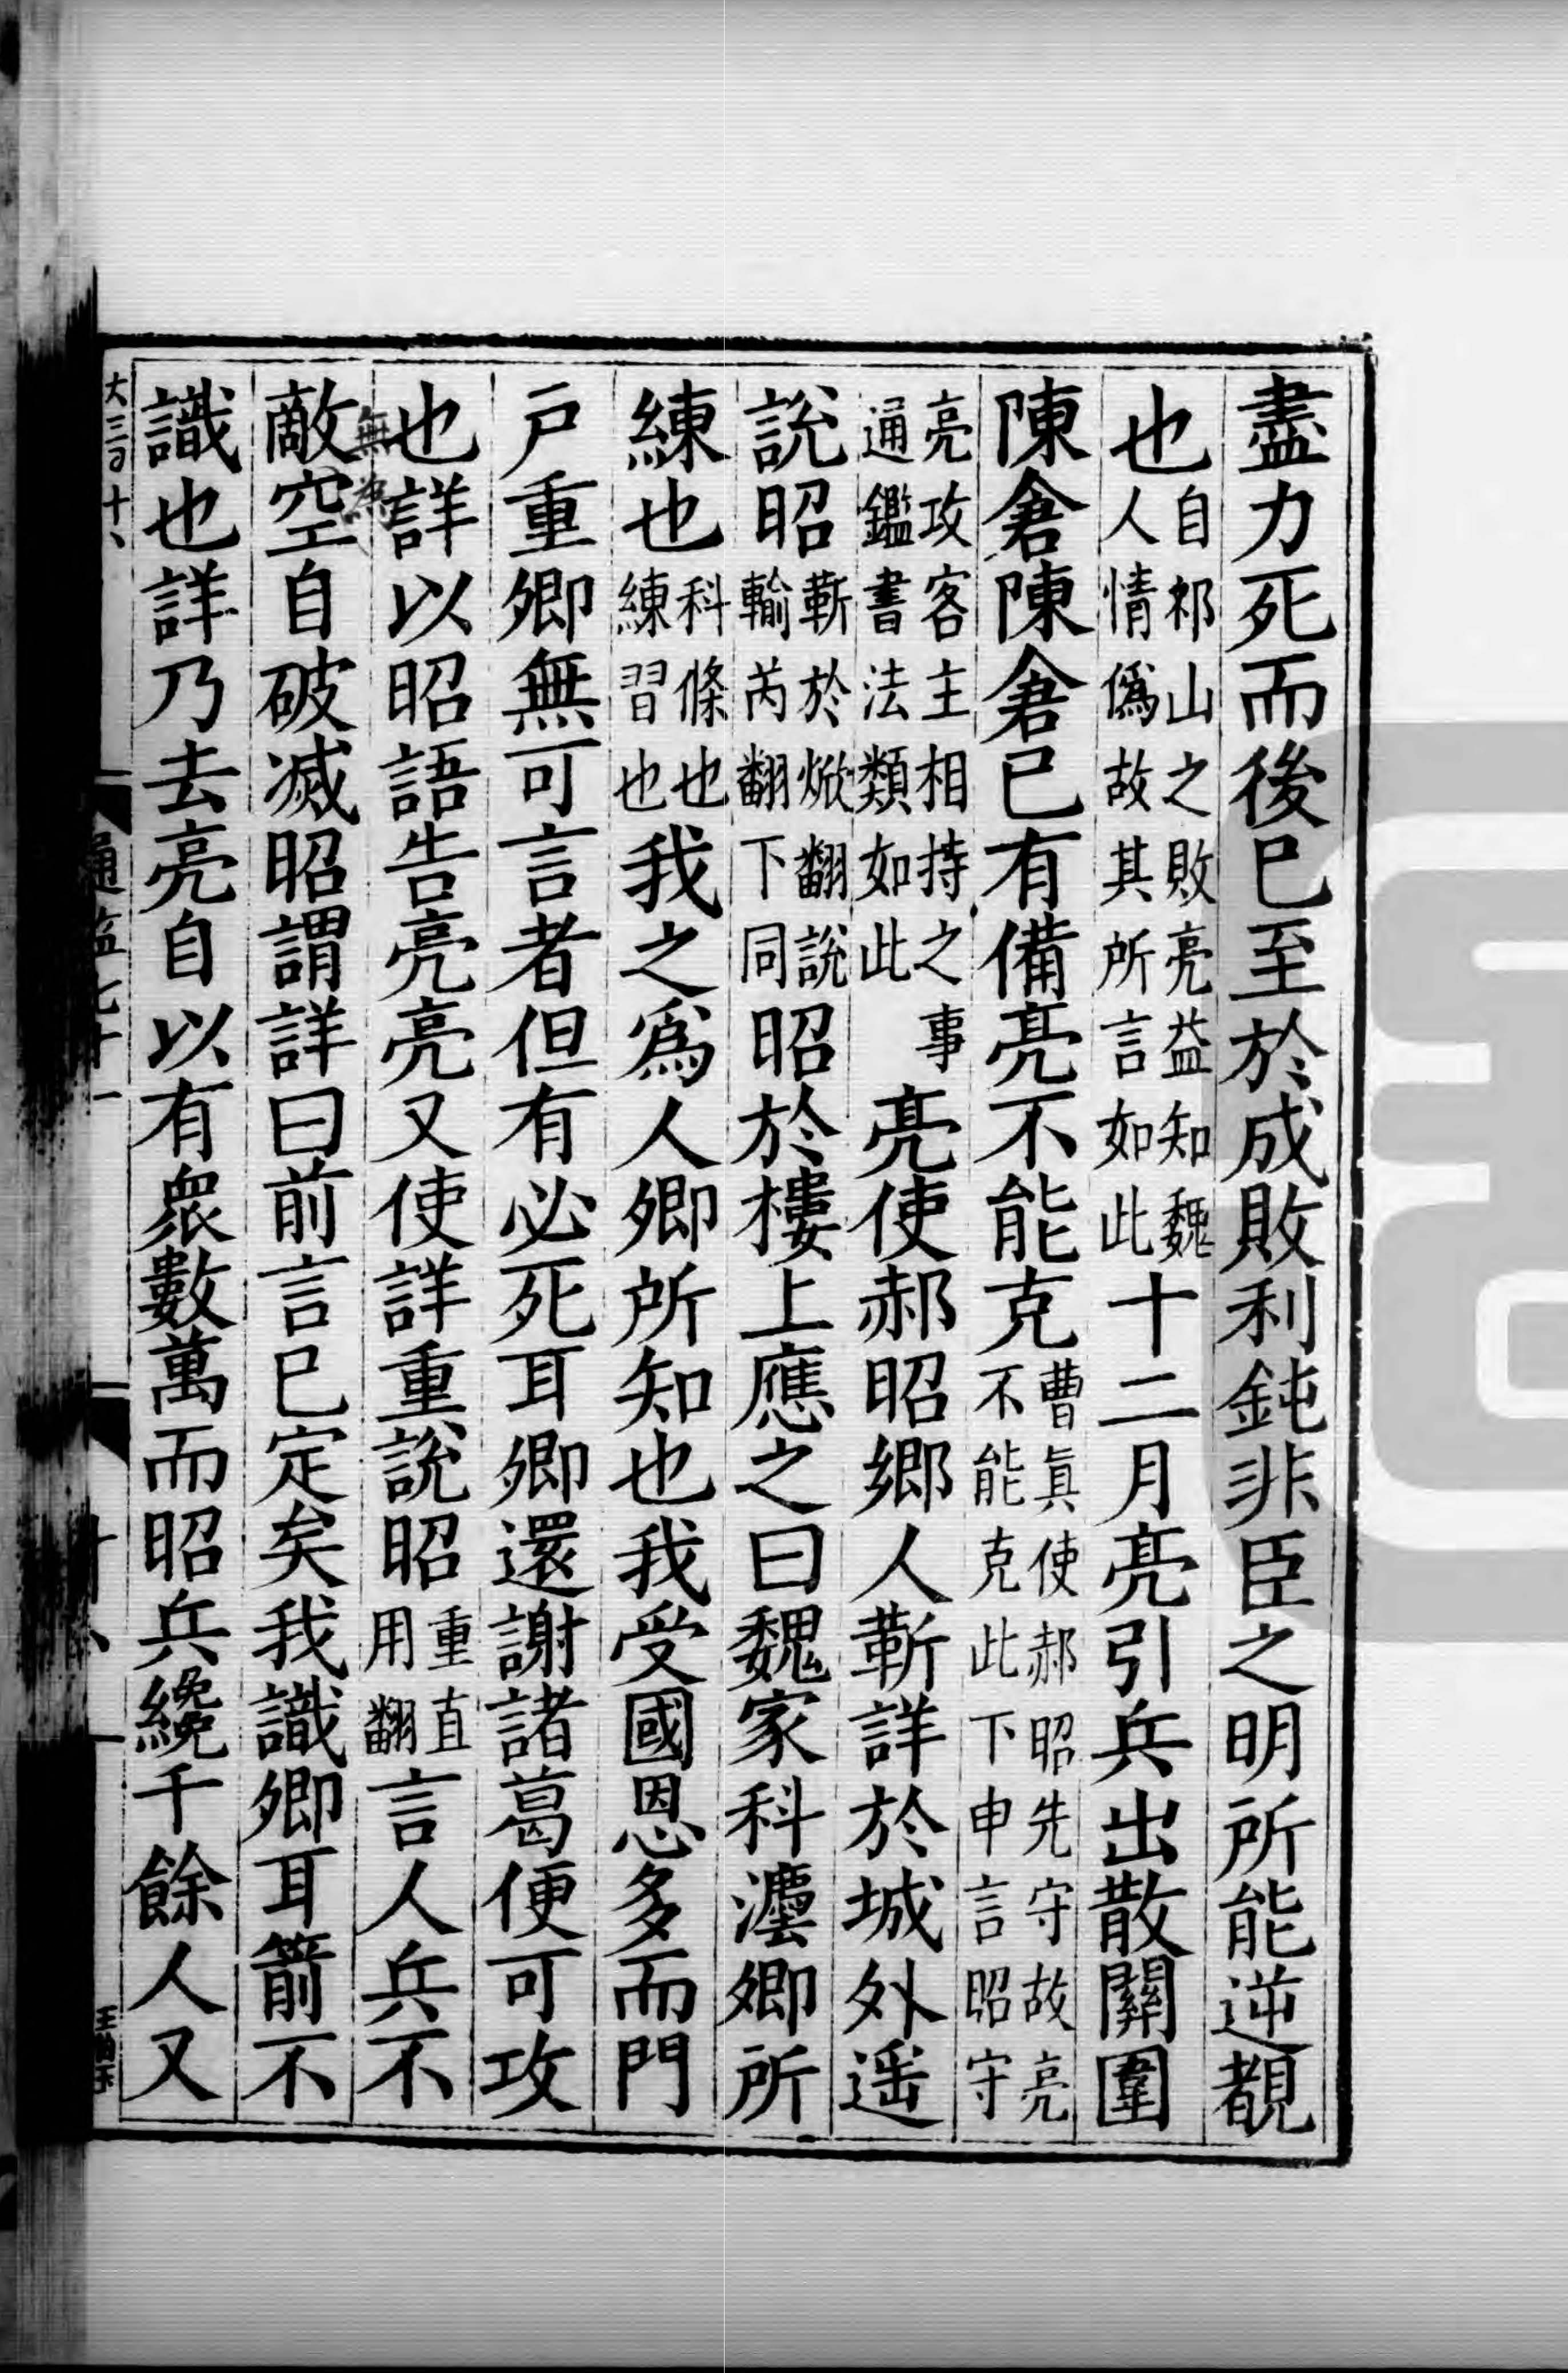 盡力死而後已至於成敗利鈍非臣之明所能逆覩
也自祁山之敗亮益知魏人情僞故其所言如此十二月亮引兵出散關圍
陳倉陳倉已有備亮不能克曹眞使郝昭先守故亮不能克此下申言昭守
亮攻客主相持之事通鑑書法類如此亮使郝昭鄉人靳詳於城外遥
說昭靳於焮翻說輸芮翻下同昭於樓上應之曰魏家科灋卿所
練也科條也練習也我之爲人卿所知也我受國恩多而門
戶重卿無可言者但有必死耳卿還謝諸葛便可攻
也詳以昭語告亮亮又使詳重說昭重直用翻言人兵不
無爲
敵空自破滅昭謂詳曰前言已定矣我識卿耳箭不
識也詳乃去亮自以有衆數萬而昭兵纔千餘人又
大三百十
通監七十一